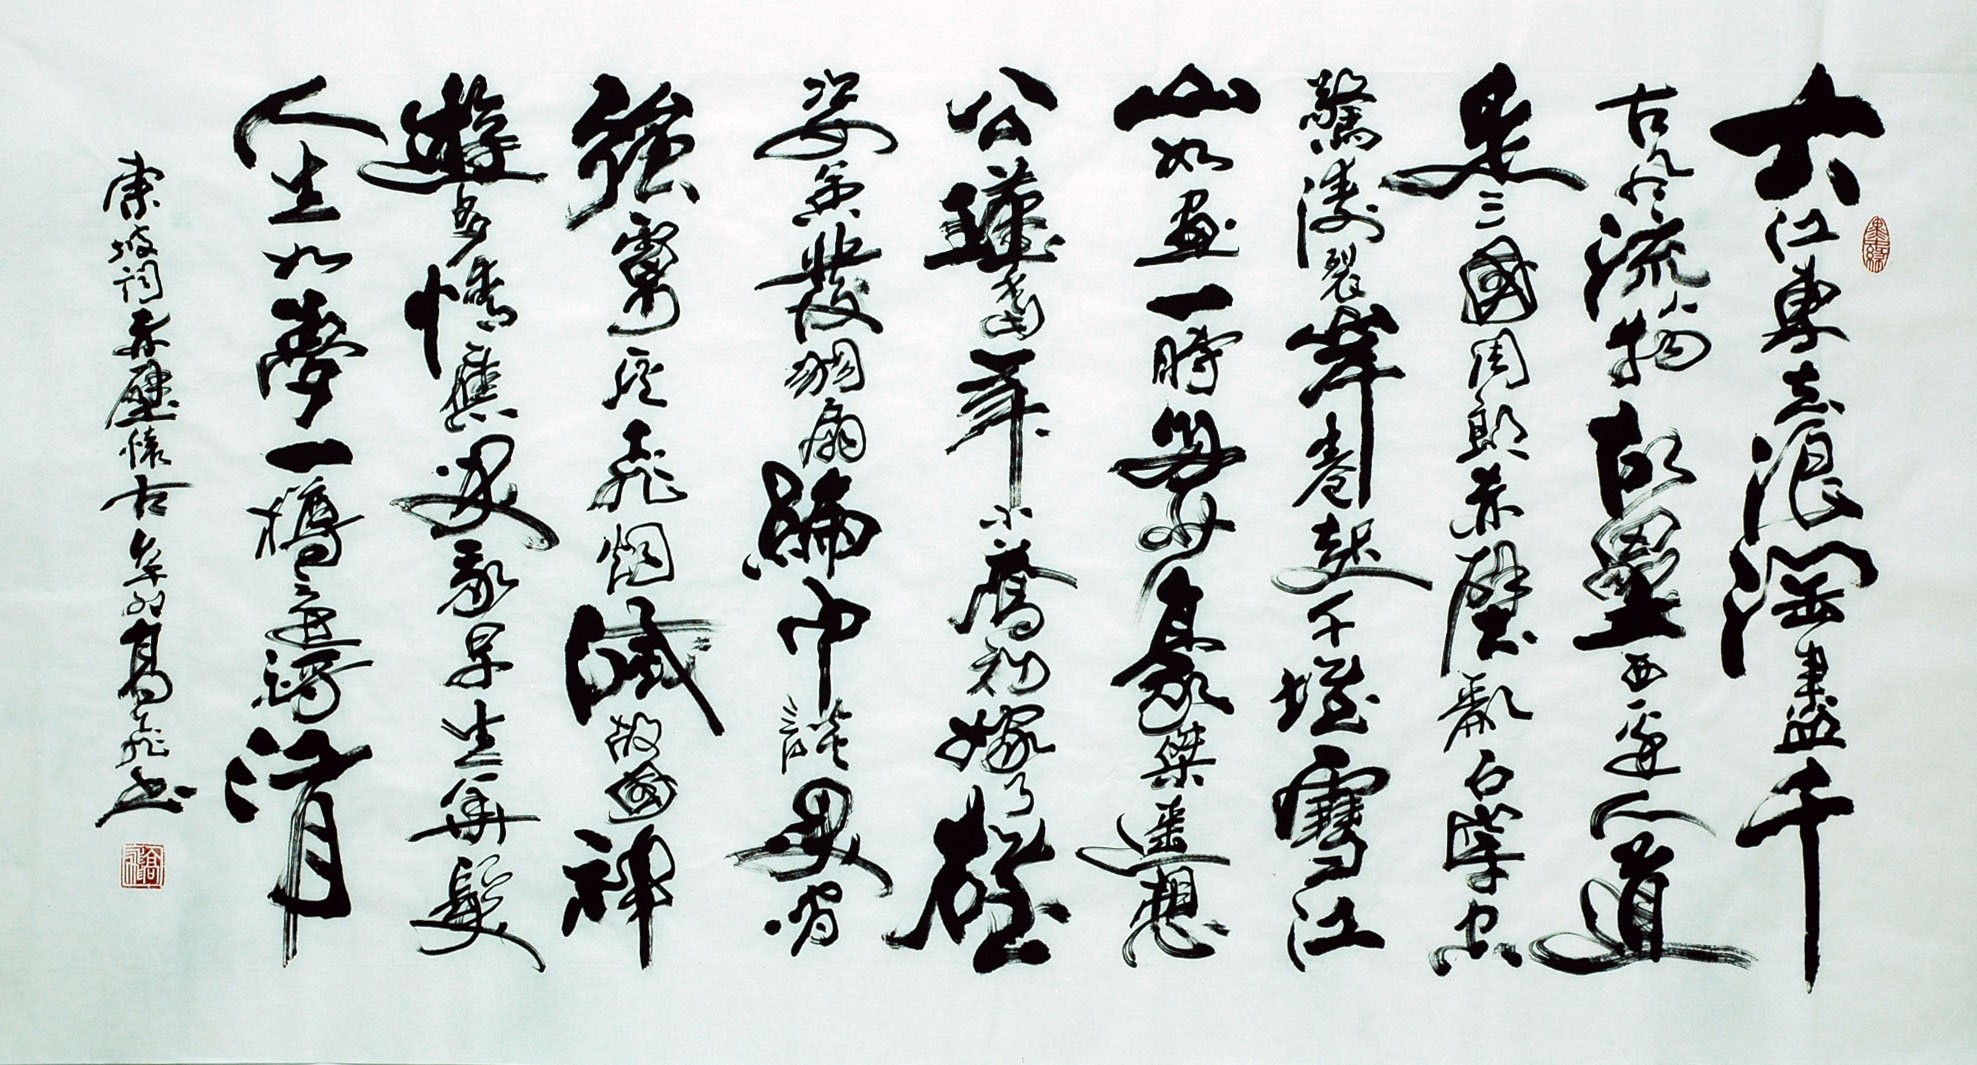 大江東去浪淘盡千
古風流人物故壘西邊人道
是三國周郎赤壁亂石穿空
驚濤裂岸卷起千堆雪江
山如畫一時多少豪傑遙想
公瑾當年小喬初嫁了雄
姿英發羽扇綸巾談笑間
強虜灰飛烟滅故國神
遊多情應笑我早生華髮
人生如夢一樽還酹江月
東坡詞赤壁懷古辛卯高飛書